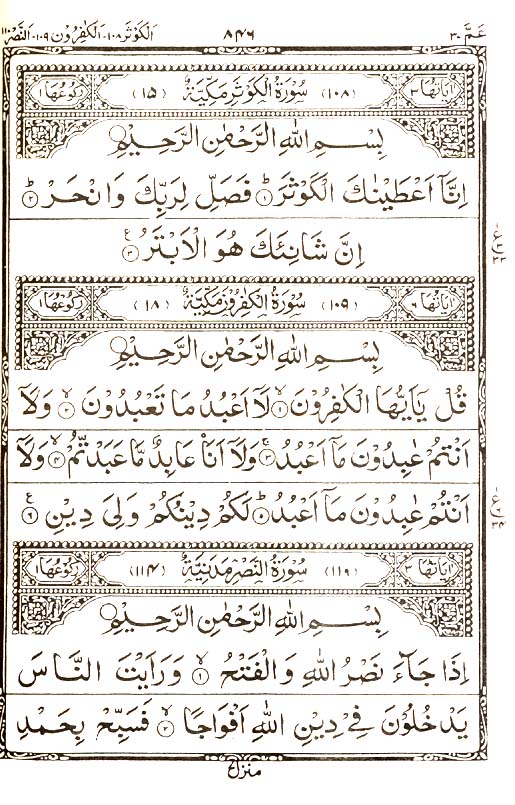 عَمَّ ٣٠ ٨٤٦ الكوثر ١٠٨ـ الكفرون ١٠٩ـ النصر ١١٠
اٰيَاتُهَا ٣ (١٠٨) سُوْرَةُ الْكَوْثَرِ مَكِّيَّةٌ (١٥) رُكُوْعُهَا ١
بِسْمِ اللّٰهِ الرَّحْمٰنِ الرَّحِيْمِ
اِنَّآ اَعْطَيْنٰكَ الْكَوْثَرَ ۝١ فَصَلِّ لِرَبِّكَ وَانْحَرْ ۝٢
اِنَّ شَانِئَكَ هُوَ الْاَبْتَرُ ۝٣
اٰيَاتُهَا ٦ (١٠٩) سُوْرَةُ الْكٰفِرُوْنَ مَكِّيَّةٌ (١٨) رُكُوْعُهَا ١
بِسْمِ اللّٰهِ الرَّحْمٰنِ الرَّحِيْمِ
قُلْ يٰٓاَيُّهَا الْكٰفِرُوْنَ ۝١ لَآ اَعْبُدُ مَا تَعْبُدُوْنَ ۝٢ وَلَآ
اَنْتُمْ عٰبِدُوْنَ مَآ اَعْبُدُ ۝٣ وَلَآ اَنَا عَابِدٌ مَّا عَبَدْتُّمْ ۝٤ وَلَآ
اَنْتُمْ عٰبِدُوْنَ مَآ اَعْبُدُ ۝٥ لَكُمْ دِيْنُكُمْ وَلِيَ دِيْنِ ۝٦
اٰيَاتُهَا ٣ (١١٠) سُوْرَةُ النَّصْرِ مَدَنِيَّةٌ (١١٤) رُكُوْعُهَا ١
بِسْمِ اللّٰهِ الرَّحْمٰنِ الرَّحِيْمِ
اِذَا جَآءَ نَصْرُ اللّٰهِ وَالْفَتْحُ ۝١ وَرَاَيْتَ النَّاسَ
يَدْخُلُوْنَ فِيْ دِيْنِ اللّٰهِ اَفْوَاجًا ۝٢ فَسَبِّحْ بِحَمْدِ